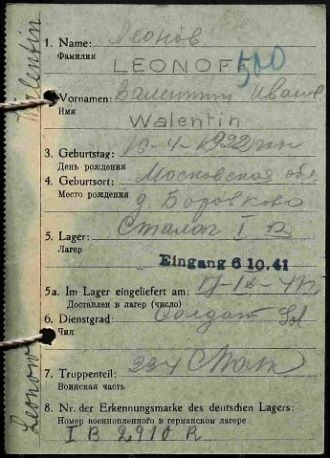 Walentin
Leonow
1. Name: Леонов
Фамилия
LEONOFF 500
Vornamen: Валентин Иванов
Имя
Walentin
3. Geburtstag: 1922
День рождения
4. Geburtsort: Московская обл
Место рождения
д. Боровково
5. Lager: Сталаг I B
Лагерь
Eingang 6 10. 41
5a. Im Lager eingeliefert am:
Доставлен в лагерь (число)
6. Dienstgrad: Солдат Sol
Чин
7. Truppenteil: 234
Воинская часть
8. Nr. der Erkennungsmarke des deutschen Lagers:
Номер военнопленного в германском лагере
I B 2910 R.